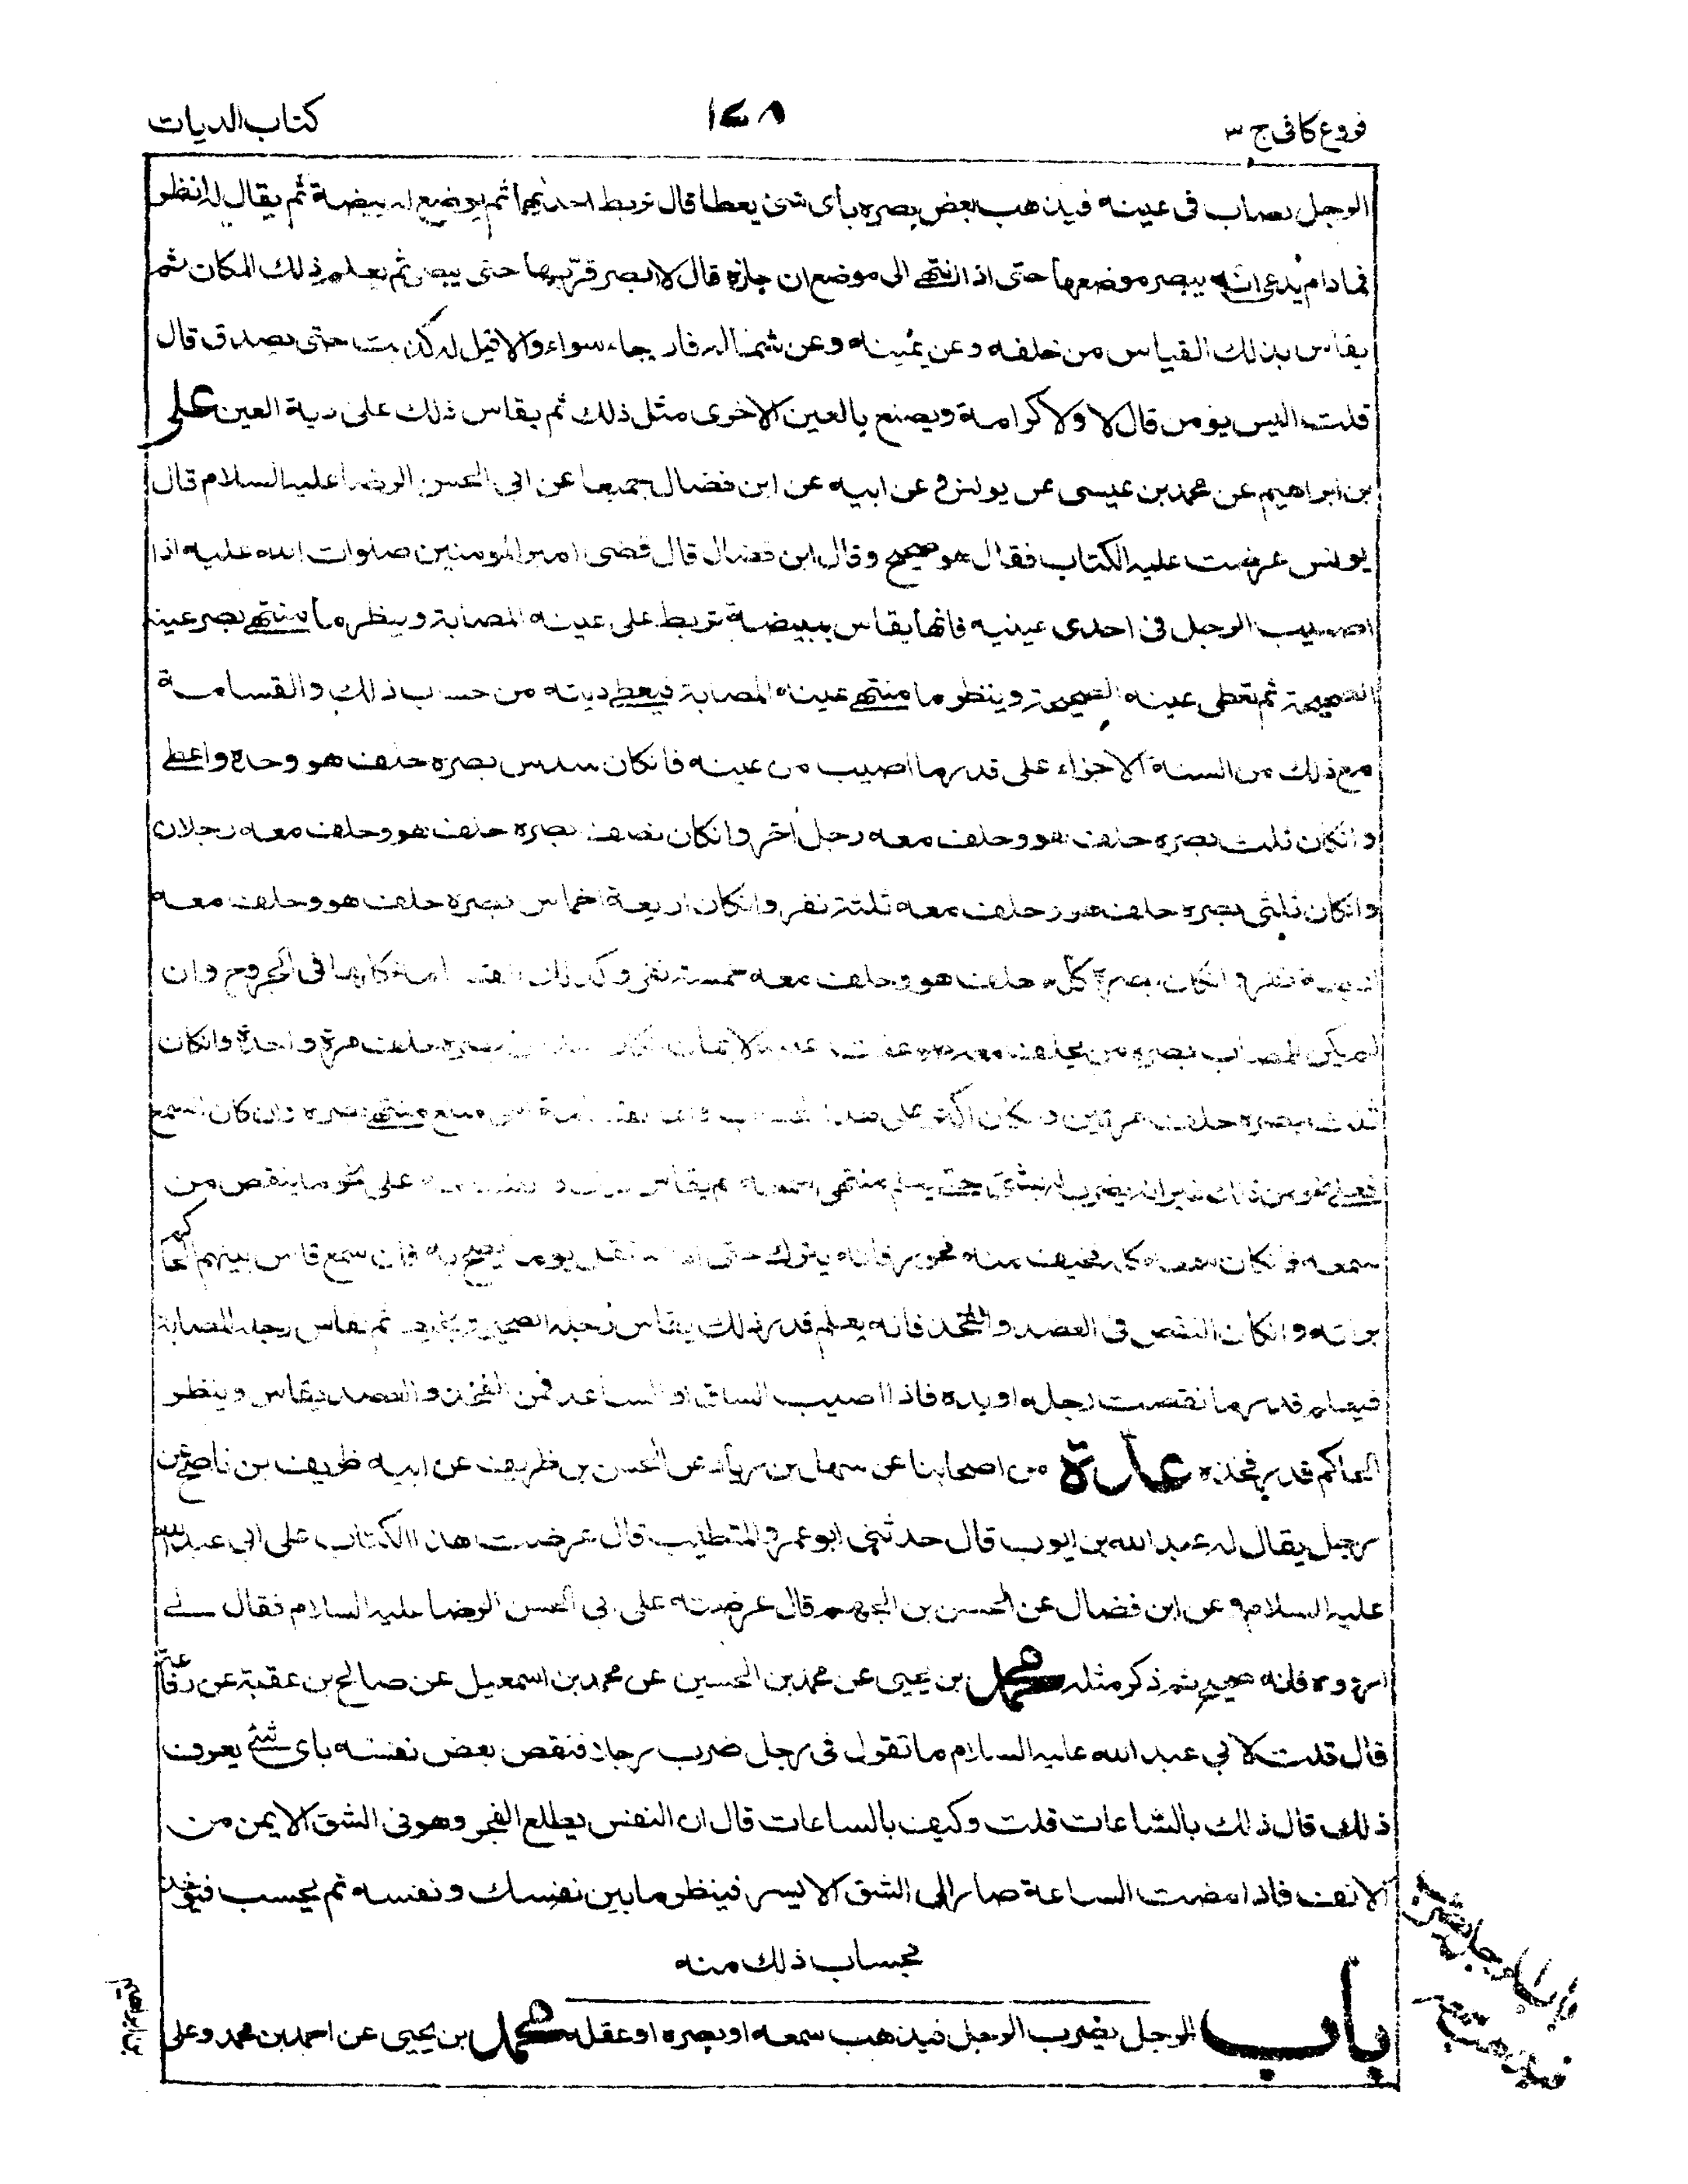 فروع كافى ج ٣
١٤٨
كتاب الديات
الرجل يصاب فى عينه فيذهب بعض بصره بأى شئ يعطا قال تربط احدهما ثم يوضع له بيضة ثم يقال له انظر
فما دام يدعى انه يبصر موضعها حتى اذا انتهى الى موضع ان جازه قال لا ابصر قرّبها حتى يبصر ثم يعلم ذلك المكان ثم
يقاس بذلك القياس من خلفه وعن يمينه وعن شماله فان جاء سواء والا قيل له كذبت حتى يصدق قال
قلت اليس يؤمن قال لا ولا كرامة ويصنع بالعين الاخرى مثل ذلك ثم يقاس ذلك على دية العين على
بن ابراهيم عن محمد بن عيسى عن يونس وعن ابيه عن ابن فضال جميعا عن ابى الحسن الرضا عليه السلام قال
يونس عرضت عليه الكتاب فقال هو صحيح وقال ابن فضال قال قضى امير المومنين صلوات الله عليه اذا
اصيب الرجل فى احدى عينيه فانها يقاس ببيضة تربط على عينه المصابة وينظر ما منتهى بصر عينه
الصحيحة ثم تغطى عينه الصحيحة وينظر ما منتهى عينه المصابة فيعطى ديته من حساب ذلك والقسامة
مع ذلك من الستة الاجزاء على قدر ما اصيب من عينه فانكان سدس بصره حلف هو وحده واعطى
وانكان ثلث بصره حلف هو وحلف معه رجل اخر وانكان نصف بصره حلف هو وحلف معه رجلان
وانكان ثلثى بصره حلف هو وحلف معه ثلثة نفر وانكان اربعة اخماس بصره حلف هو وحلف معه
اربعة نفر وانكان بصره كله حلف هو وحلف معه خمسة نفر وكذلك القسامة كلها فى الجروح وان
لم يكن للمصاب بصره من يحلف معه ضوعفت عليه الايمان ان كان سدس بصره حلف مرة واحدة وانكان
ثلث بصره حلف مرتين على منتهى بصره وان كان السمع
فعلى نحو من ذلك غير انه يضرب له بشئ حتى يعلم منتهى سمعه ثم يقاس ذلك على نحو ما ينقص من
سمعه فانكان سمعه كله فخيف منه فجور فانه يترك حتى اذا استقل يوما يصيح به فان سمع قاس بينهم الحاكم
برأيه وانكان النقص فى العضد والفخذ فانه يعلم قدر ذلك يقاس رجله الصحيحة بخيط ثم تقاس رجله المصابة
فيعلم قدر ما نقصت رجله او يده فاذا اصيب الساق او الساعد فمن الفخذ والعضد يقاس وينظر
الحاكم قدر فخذه عدة من اصحابنا عن سهل بن زياد عن الحسن بن ظريف عن ابيه ظريف بن ناصح عن
رجل يقال له عبد الله بن ايوب قال حدثنى ابو عمرو المتطبب قال عرضت هذا الكتاب على ابى عبد الله
عليه السلام وعن ابن فضال عن الحسن بن الجهم قال عرضته على ابى الحسن الرضا عليه السلام فقال لى
ارووه فانه صحيح ثم ذكر مثله محمد بن يحيى عن محمد بن الحسين عن محمد بن اسمعيل عن صالح بن عقبة عن رفاعة
قال قلت لابى عبد الله عليه السلام ما تقول فى رجل ضرب رجلا فنقص بعض نفسه باى شئ يعرف
ذلك قال ذلك بالساعات قلت وكيف بالساعات قال ان النفس يطلع الفجر وهو فى الشق الايمن من
الانف فاذا مضت الساعة صار الى الشق الايسر فينظر ما بين نفسك ونفسه ثم يحسب فيؤخذ
بحساب ذلك منه
باب الرجل يضرب الرجل فيذهب سمعه او بصره او عقله محمد بن يحيى عن احمد بن محمد وعلى
بن ابراهيم